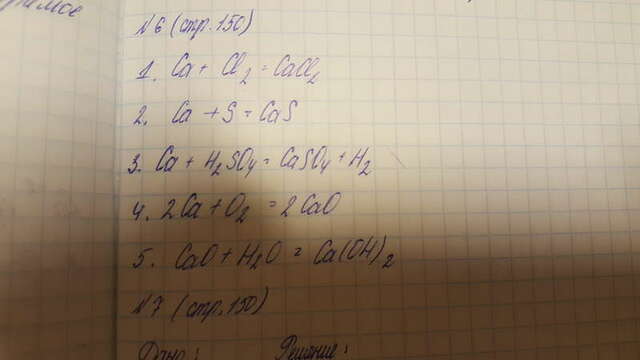 N6 (стр. 150)
1. Ca + Cl2 = CaCl2
2. Ca + S = CaS
3. Ca + H2SO4 = CaSO4 + H2
4. 2Ca + O2 = 2CaO
5. CaO + H2O = Ca(OH)2
N7 (стр. 150)
Дано: Решение: